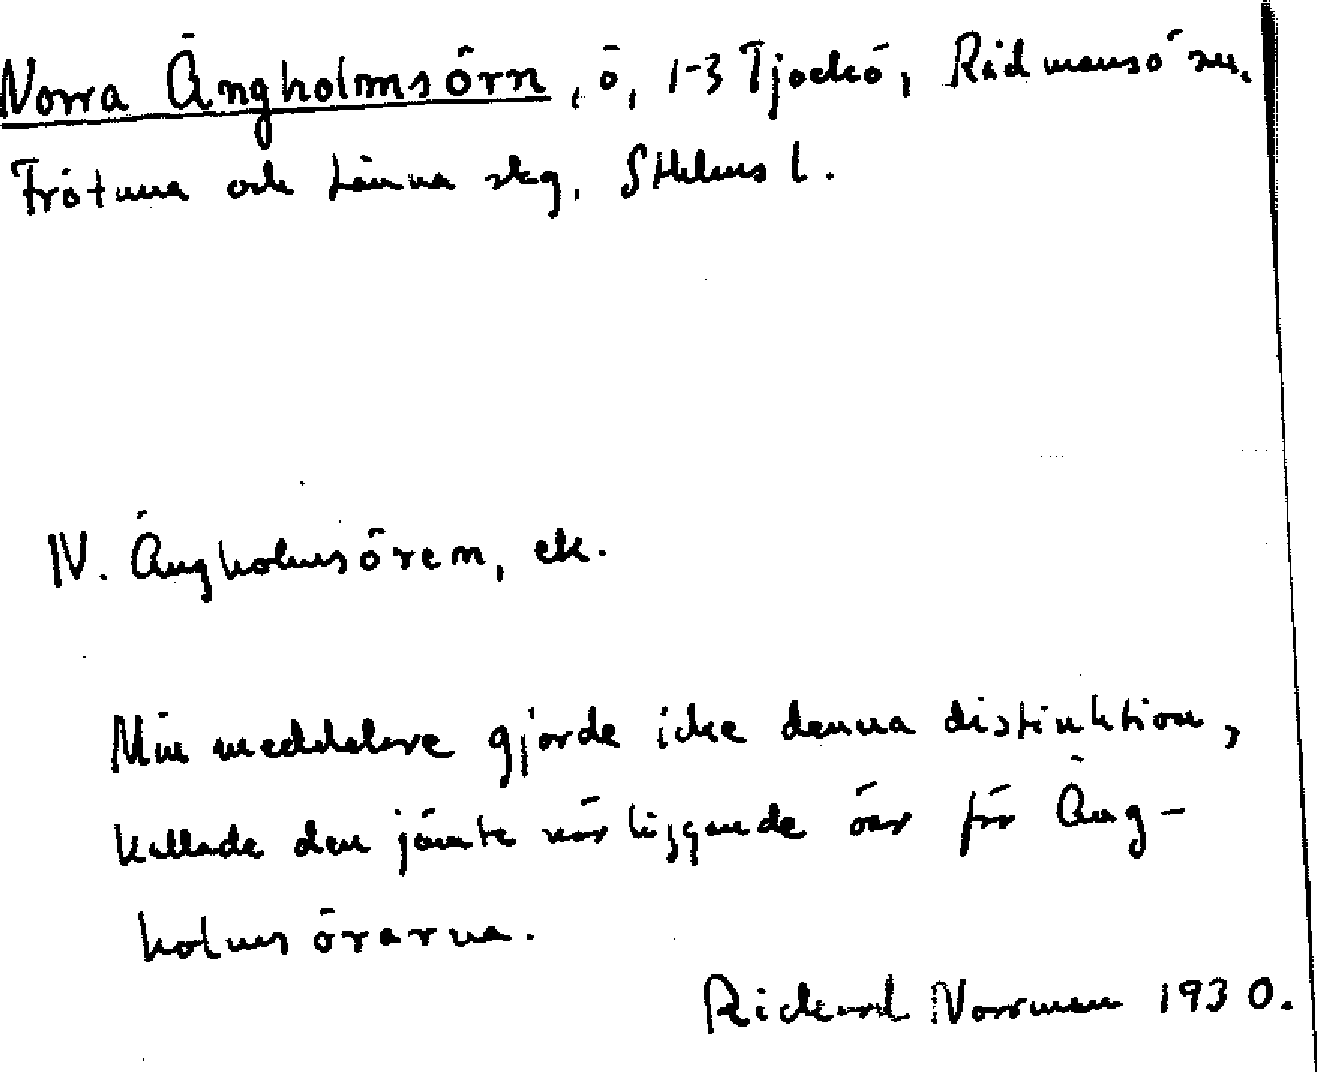 Norra Ängholmsörn, ö, 1-3 Tjockö, Rådmansö sn.
Frötuna och Länna skg, Sthlms l.
N. Ängholmsören, ek.
Min meddelare gjorde icke denna distinktion,
kallade den jämte närliggande öar för Äng-
holmsörarna.
Rickard Norrman 1930.